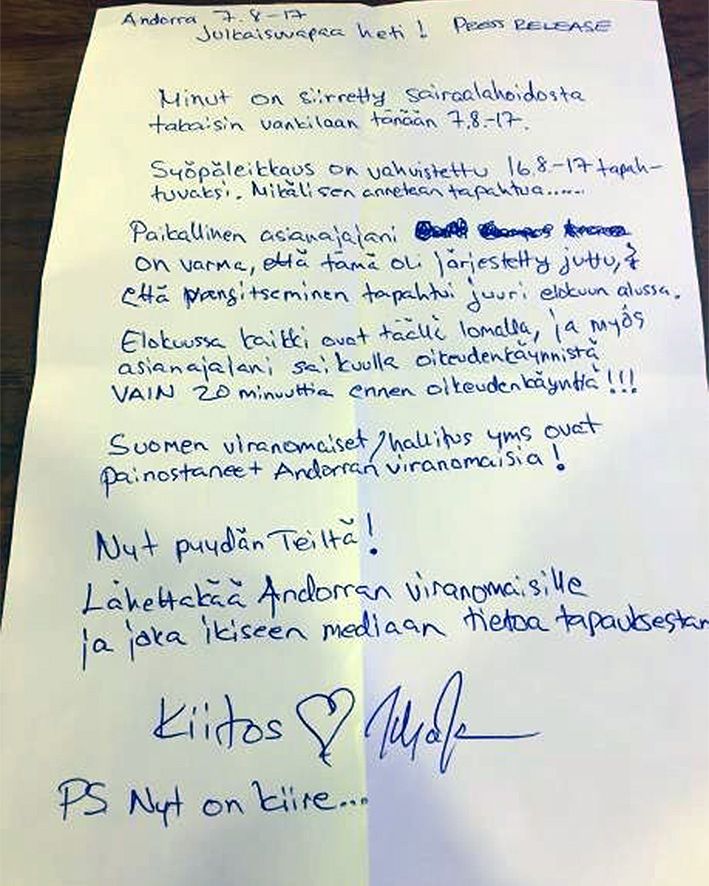 Andorra 7.8-17
Julkaisuvapaa heti! PRESS RELEASE
Minut on siirretty sairaalahoidosta
takaisin vankilaan tänään 7.8.-17.
Syöpäleikkaus on vahvistettu 16.8-17 tapah-
tuvaksi. Mikäli sen annetaan tapahtua......
Paikallinen asianajajani
on varma, että tämä oli järjestetty juttu,
että pangitseminen tapahtui juuri elokuun alussa.
Elokuussa kaikki ovat täällä lomalla, ja myös
asianajajani sai kuulla oikeudenkäynnistä
VAIN 20 minuuttia ennen oikeudenkäyntiä!!!
Suomen viranomaiset/hallitus yms ovat
painostaneet Andorran viranomaisia!
Nyt pyydän Teiltä!
Lähettäkää Andorran viranomaisille
ja joka ikiseen mediaan tietoa tapauksestan
Kiitos ♡
PS Nyt on kiire...